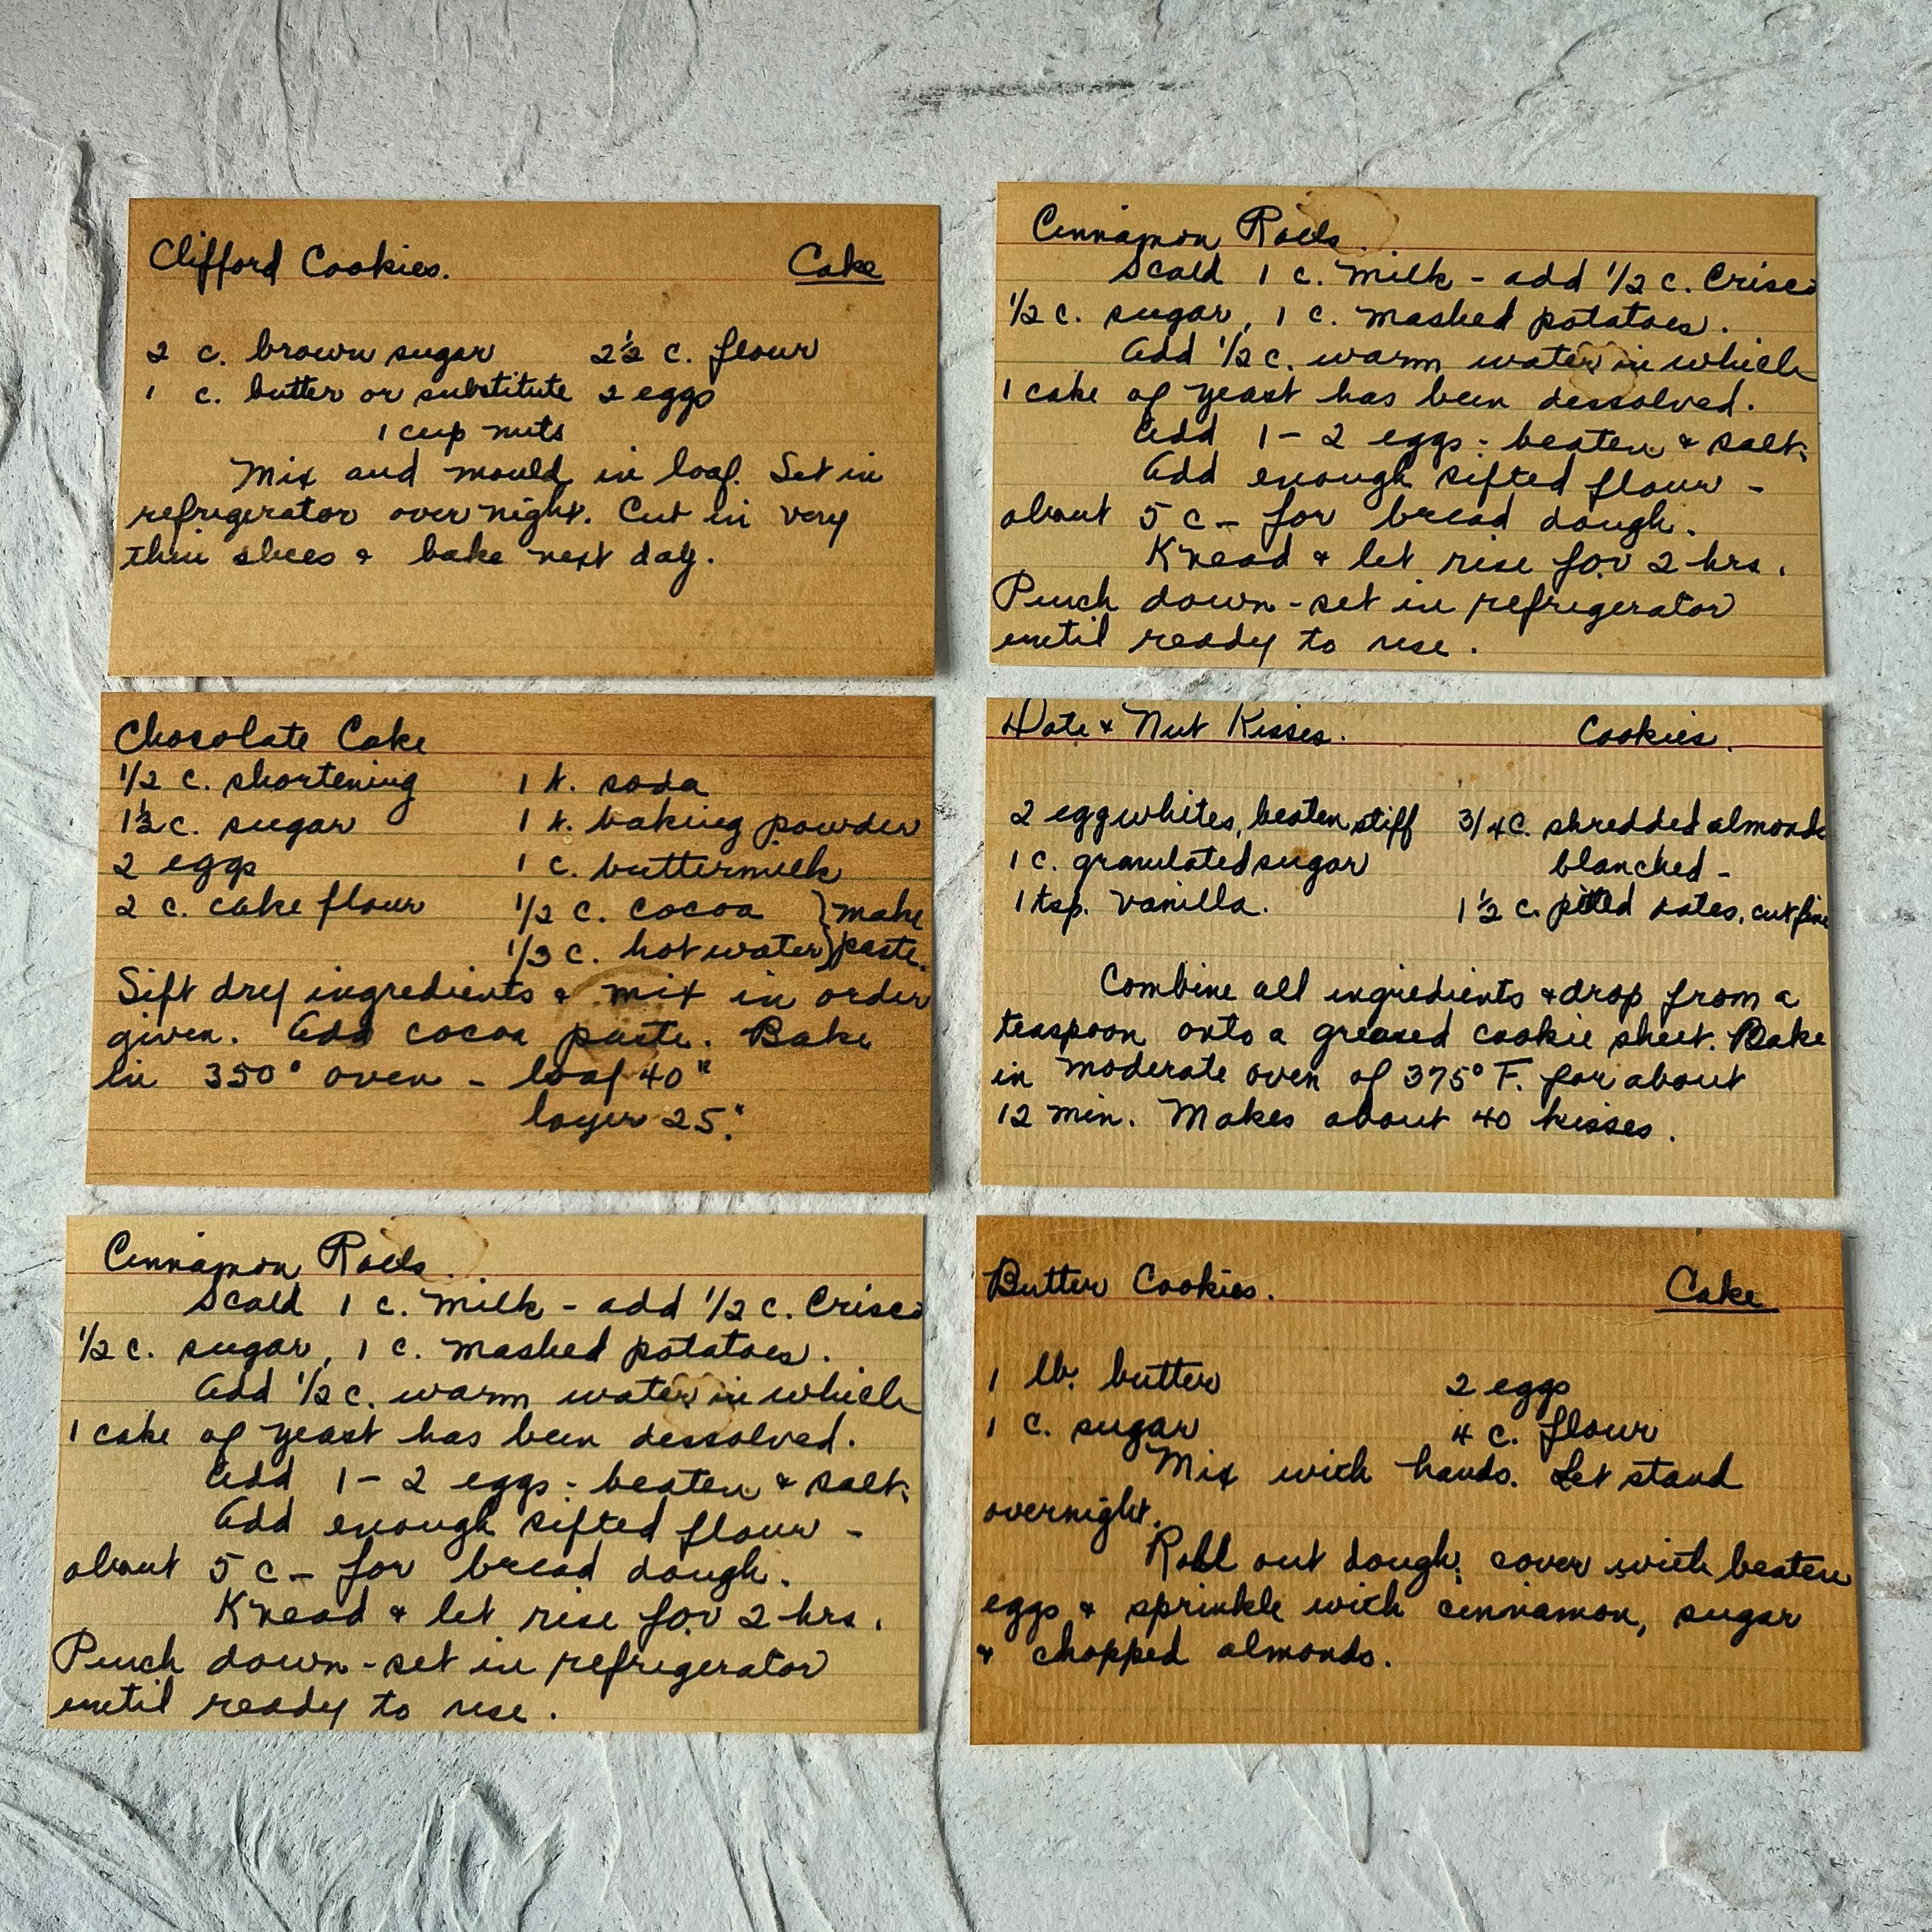 Clifford Cookies. Cake
2 c. brown sugar 2½ c. flour
1 c. butter or substitute 2 eggs
1 cup nuts
Mix and mould in loaf. Set in
refrigerator over night. Cut in very
thin slices & bake next day.
Cinnamon Rolls.
Scald 1 c. Milk - add 1/2 c. Crisco
1/2 c. sugar, 1 c. mashed potatoes.
Add 1/2 c. warm water in which
1 cake of yeast has been dessolved.
Add 1 - 2 eggs - beaten & salt.
Add enough sifted flour -
about 5 c - for bread dough.
Knead & let rise for 2 hrs.
Punch down - set in refrigerator
until ready to use.
Chocolate Cake
1/2 c. shortening 1 t. soda
1½ c. sugar 1 t. baking powder
2 eggs 1 c. buttermilk
2 c. cake flour 1/2 c. cocoa } make
1/3 c. hot water } paste.
Sift dry ingredients & mix in order
given. Add cocoa paste. Bake
in 350° oven - loaf 40"
layer 25."
Date & Nut Kisses. Cookies.
2 egg whites, beaten stiff 3/4 c. shredded almonds
1 c. granulated sugar blanched -
1 tsp. vanilla. 1½ c. pitted dates, cut fine
Combine all ingredients & drop from a
teaspoon onto a greased cookie sheet. Bake
in moderate oven of 375° F. for about
12 min. Makes about 40 kisses.
Cinnamon Rolls.
Scald 1 c. Milk - add 1/2 c. Crisco
1/2 c. sugar, 1 c. mashed potatoes.
Add 1/2 c. warm water in which
1 cake of yeast has been dessolved.
Add 1 - 2 eggs - beaten & salt.
Add enough sifted flour -
about 5 c - for bread dough.
Knead & let rise for 2 hrs.
Punch down - set in refrigerator
until ready to use.
Butter Cookies. Cake
1 lb. butter 2 eggs
1 c. sugar 4 c. flour
Mix with hands. Let stand
overnight.
Roll out dough; cover with beaten
eggs & sprinkle with cinnamon, sugar
& chopped almonds.